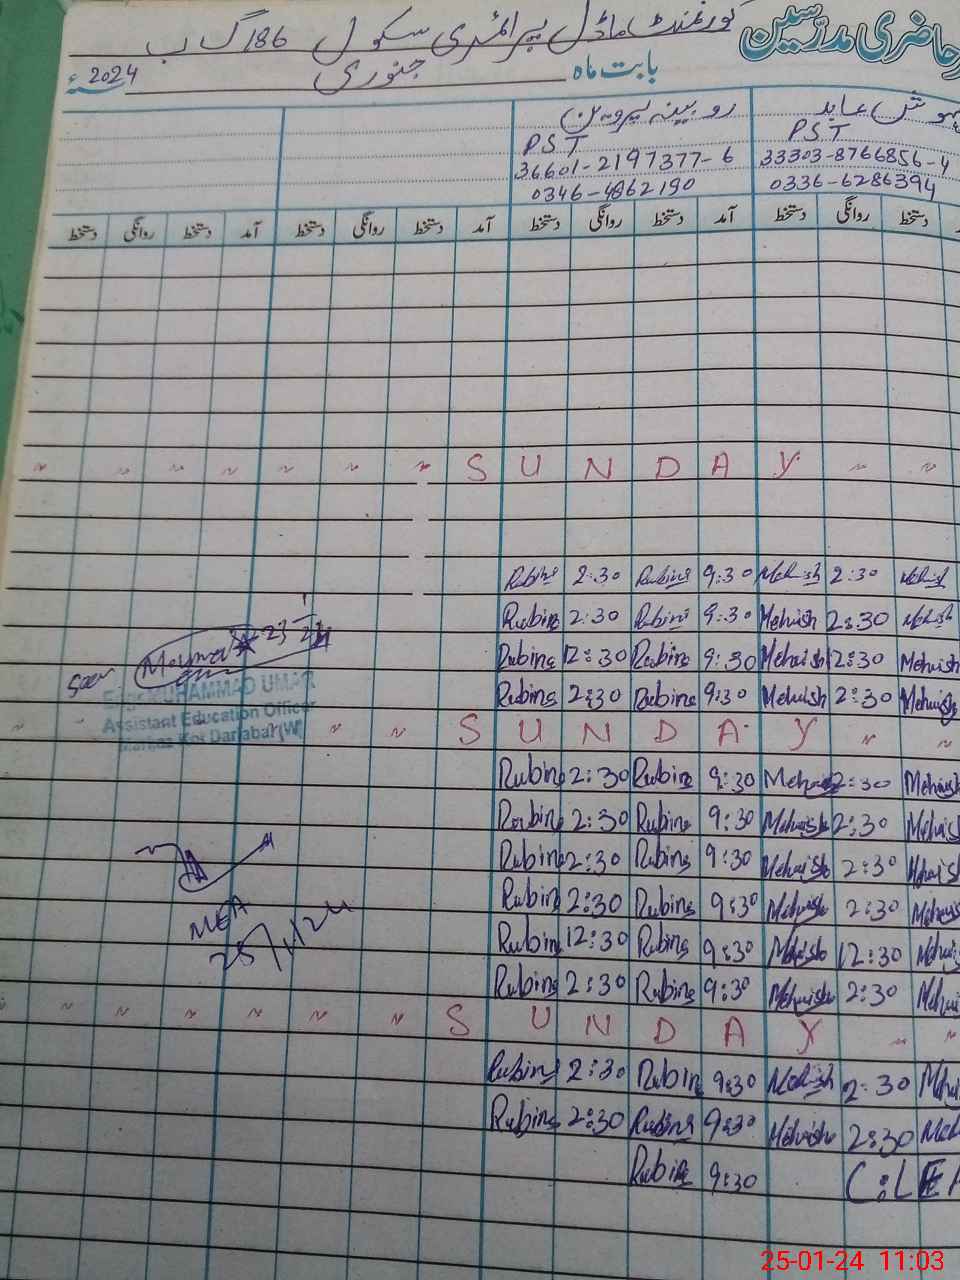 حاضری مدرسین گورنمنٹ ماڈل پرائمری سکول 186 گ ب
بابت ماہ جنوری 2024ء
عابد روبینہ پروین
PST PST
36601-2197377-6 33303-8766856-4
0346-4862190 0336-6286394
دستخط روانگی دستخط آمد دستخط روانگی دستخط آمد دستخط روانگی دستخط آمد دستخط روانگی دستخط
〃 〃 〃 〃 〃 〃 〃 S U N D A Y 〃 〃
Rubina 2:30 Rubina 9:30 Mehvish 2:30 Mehvish
Rubina 2:30 Rubina 9:30 Mehvish 2:30 Mehvish
Rubina 12:30 Rubina 9:30 Mehvish 12:30 Mehvish
Rubina 2:30 Rubina 9:30 Mehvish 2:30 Mehvish
Seen 23
MUHAMMAD UMAR
Assistant Education Officer
Markaz Kot Darlabal (W)
〃 〃 〃 S U N D A Y 〃 〃
Rubina 2:30 Rubina 9:30 Mehvish 2:30 Mehvish
Rubina 2:30 Rubina 9:30 Mehvish 2:30 Mehvish
Rubina 2:30 Rubina 9:30 Mehvish 2:30 Mehvish
Rubina 2:30 Rubina 9:30 Mehvish 2:30 Mehvish
Rubina 12:30 Rubina 9:30 Mehvish 12:30 Mehvish
Rubina 2:30 Rubina 9:30 Mehvish 2:30 Mehvish
MEA
25/1/24
〃 〃 〃 〃 〃 〃 S U N D A Y 〃 〃
Rubina 2:30 Rubina 9:30 Mehvish 2:30
Rubina 2:30 Rubina 9:30 Mehvish 2:30
Rubina 9:30 C:LEA
25-01-24 11:03